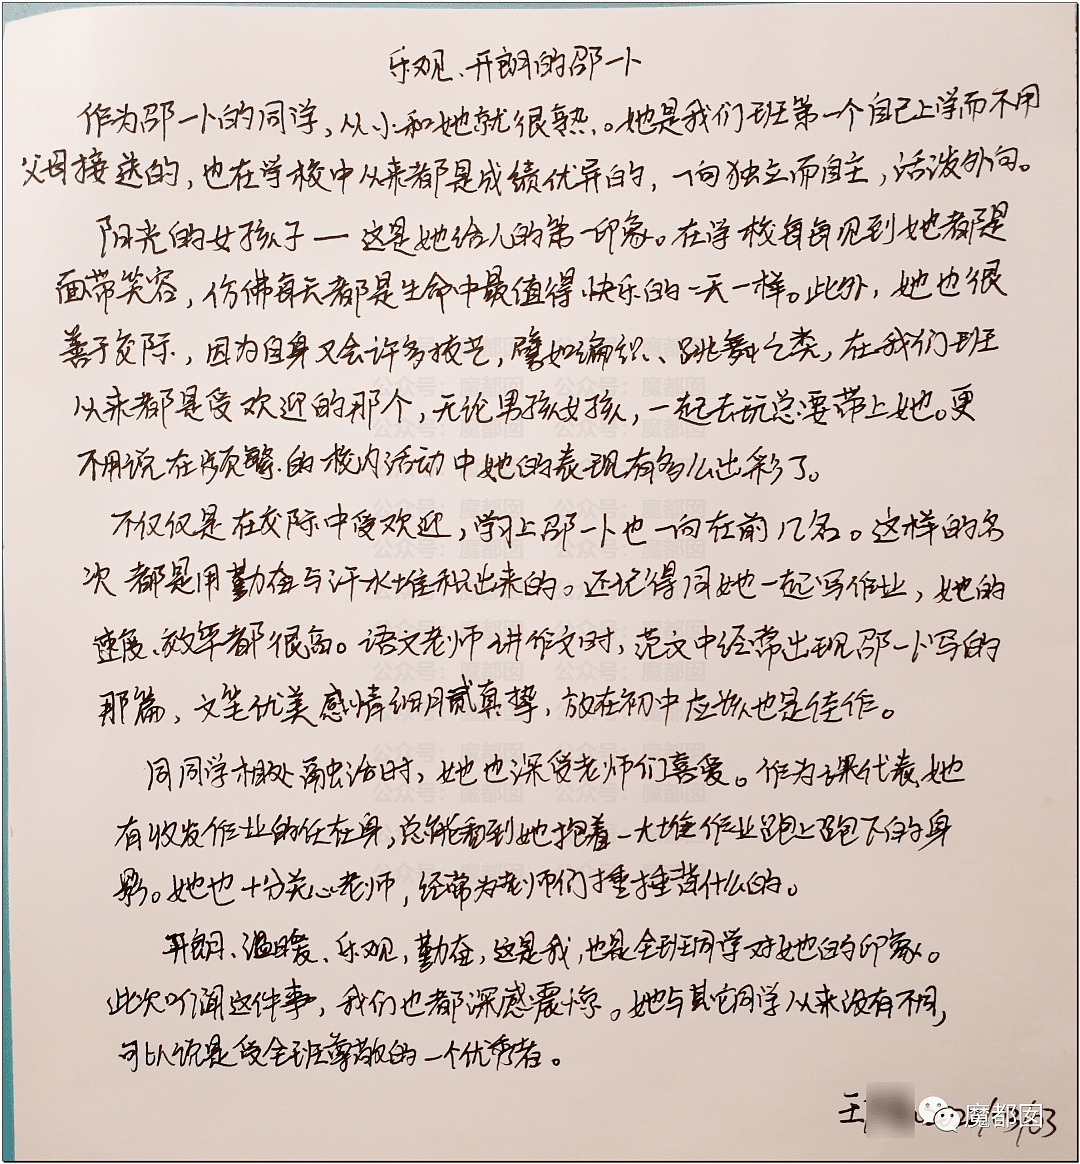 乐观、开朗的邵一卜
作为邵一卜的同学，从小和她就很熟。她是我们班第一个自己上学而不用
父母接送的，也在学校中从来都是成绩优异的，一向独立而自主，活泼外向。
阳光的女孩子——这是她给人的第一印象。在学校每每见到她都是
面带笑容，仿佛每天都是生命中最值得快乐的一天一样。此外，她也很
善于交际，因为自身又会许多技艺，譬如编织、跳舞之类，在我们班
从来都是受欢迎的那个，无论男孩女孩，一起去玩总要带上她。更
不用说在频繁的校内活动中她的表现有多么出彩了。
不仅仅是在交际中受欢迎，学习上邵一卜也一向在前几名。这样的名
次都是用勤奋与汗水堆积出来的。还记得同她一起写作业，她的
速度、效率都很高。语文老师讲作文时，范文中经常出现邵一卜写的
那篇，文笔优美感情细腻真挚，放在初中应该也是佳作。
同同学相处融洽时，她也深受老师们喜爱。作为课代表，她
有收发作业的任在身，总能看到她抱着一大堆作业跑上跑下的身
影。她也十分关心老师，经常为老师们捶捶背什么的。
开朗、温暖、乐观，勤奋，这是我，也是全班同学对她的印象。
此次听闻这件事，我们也都深感震惊。她与其它同学从来没有不同，
可以说是受全班尊敬的一个优秀者。
王
03/03
魔都囡
公众号：魔都囡 公众号：魔都囡